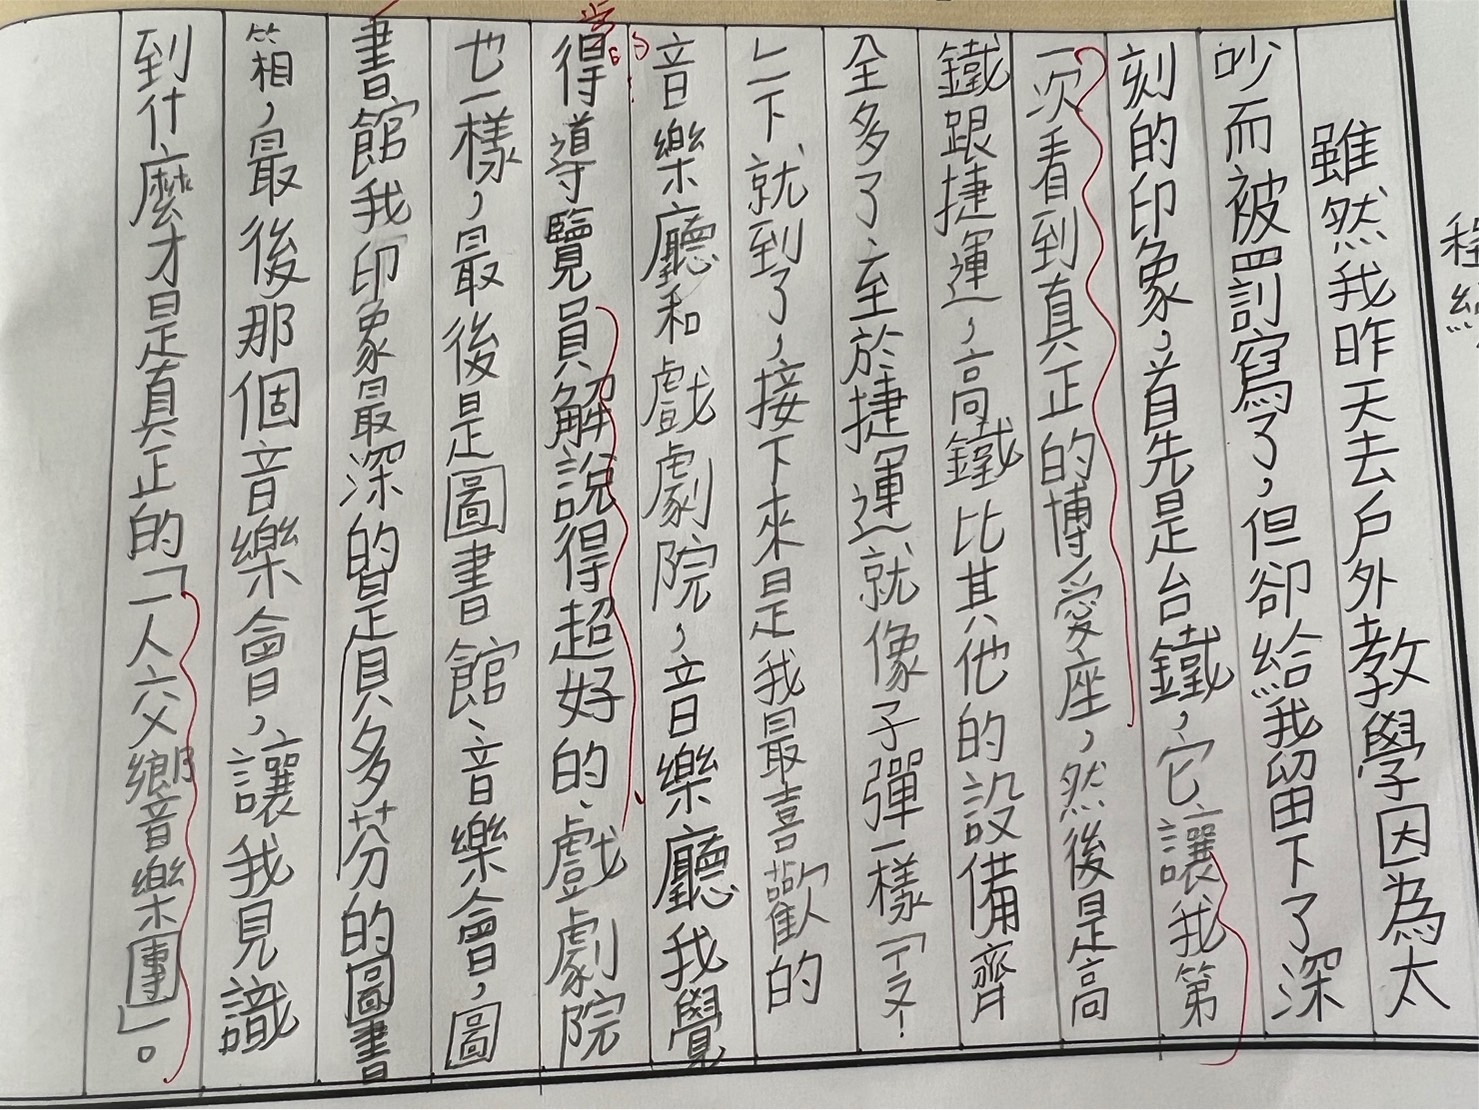 雖然我昨天去戶外教學因為太
吵而被罰寫了,但卻給我留下了深
刻的印象,首先是台鐵,它讓我第
一次看到真正的博愛座,然後是高
鐵跟捷運,高鐵比其他的設備齊
全多了,至於捷運就像子彈一樣「ㄒㄡ!
」一下就到了,接下來是我最喜歡的
音樂廳和戲劇院,音樂廳我覺
得導覽員解說得超好的、戲劇院
也一樣,最後是圖書館、音樂會,圖
書館我印象最深的是貝多芬的圖書
箱,最後那個音樂會,讓我見識
到什麼才是真正的「一人交響音樂團」。